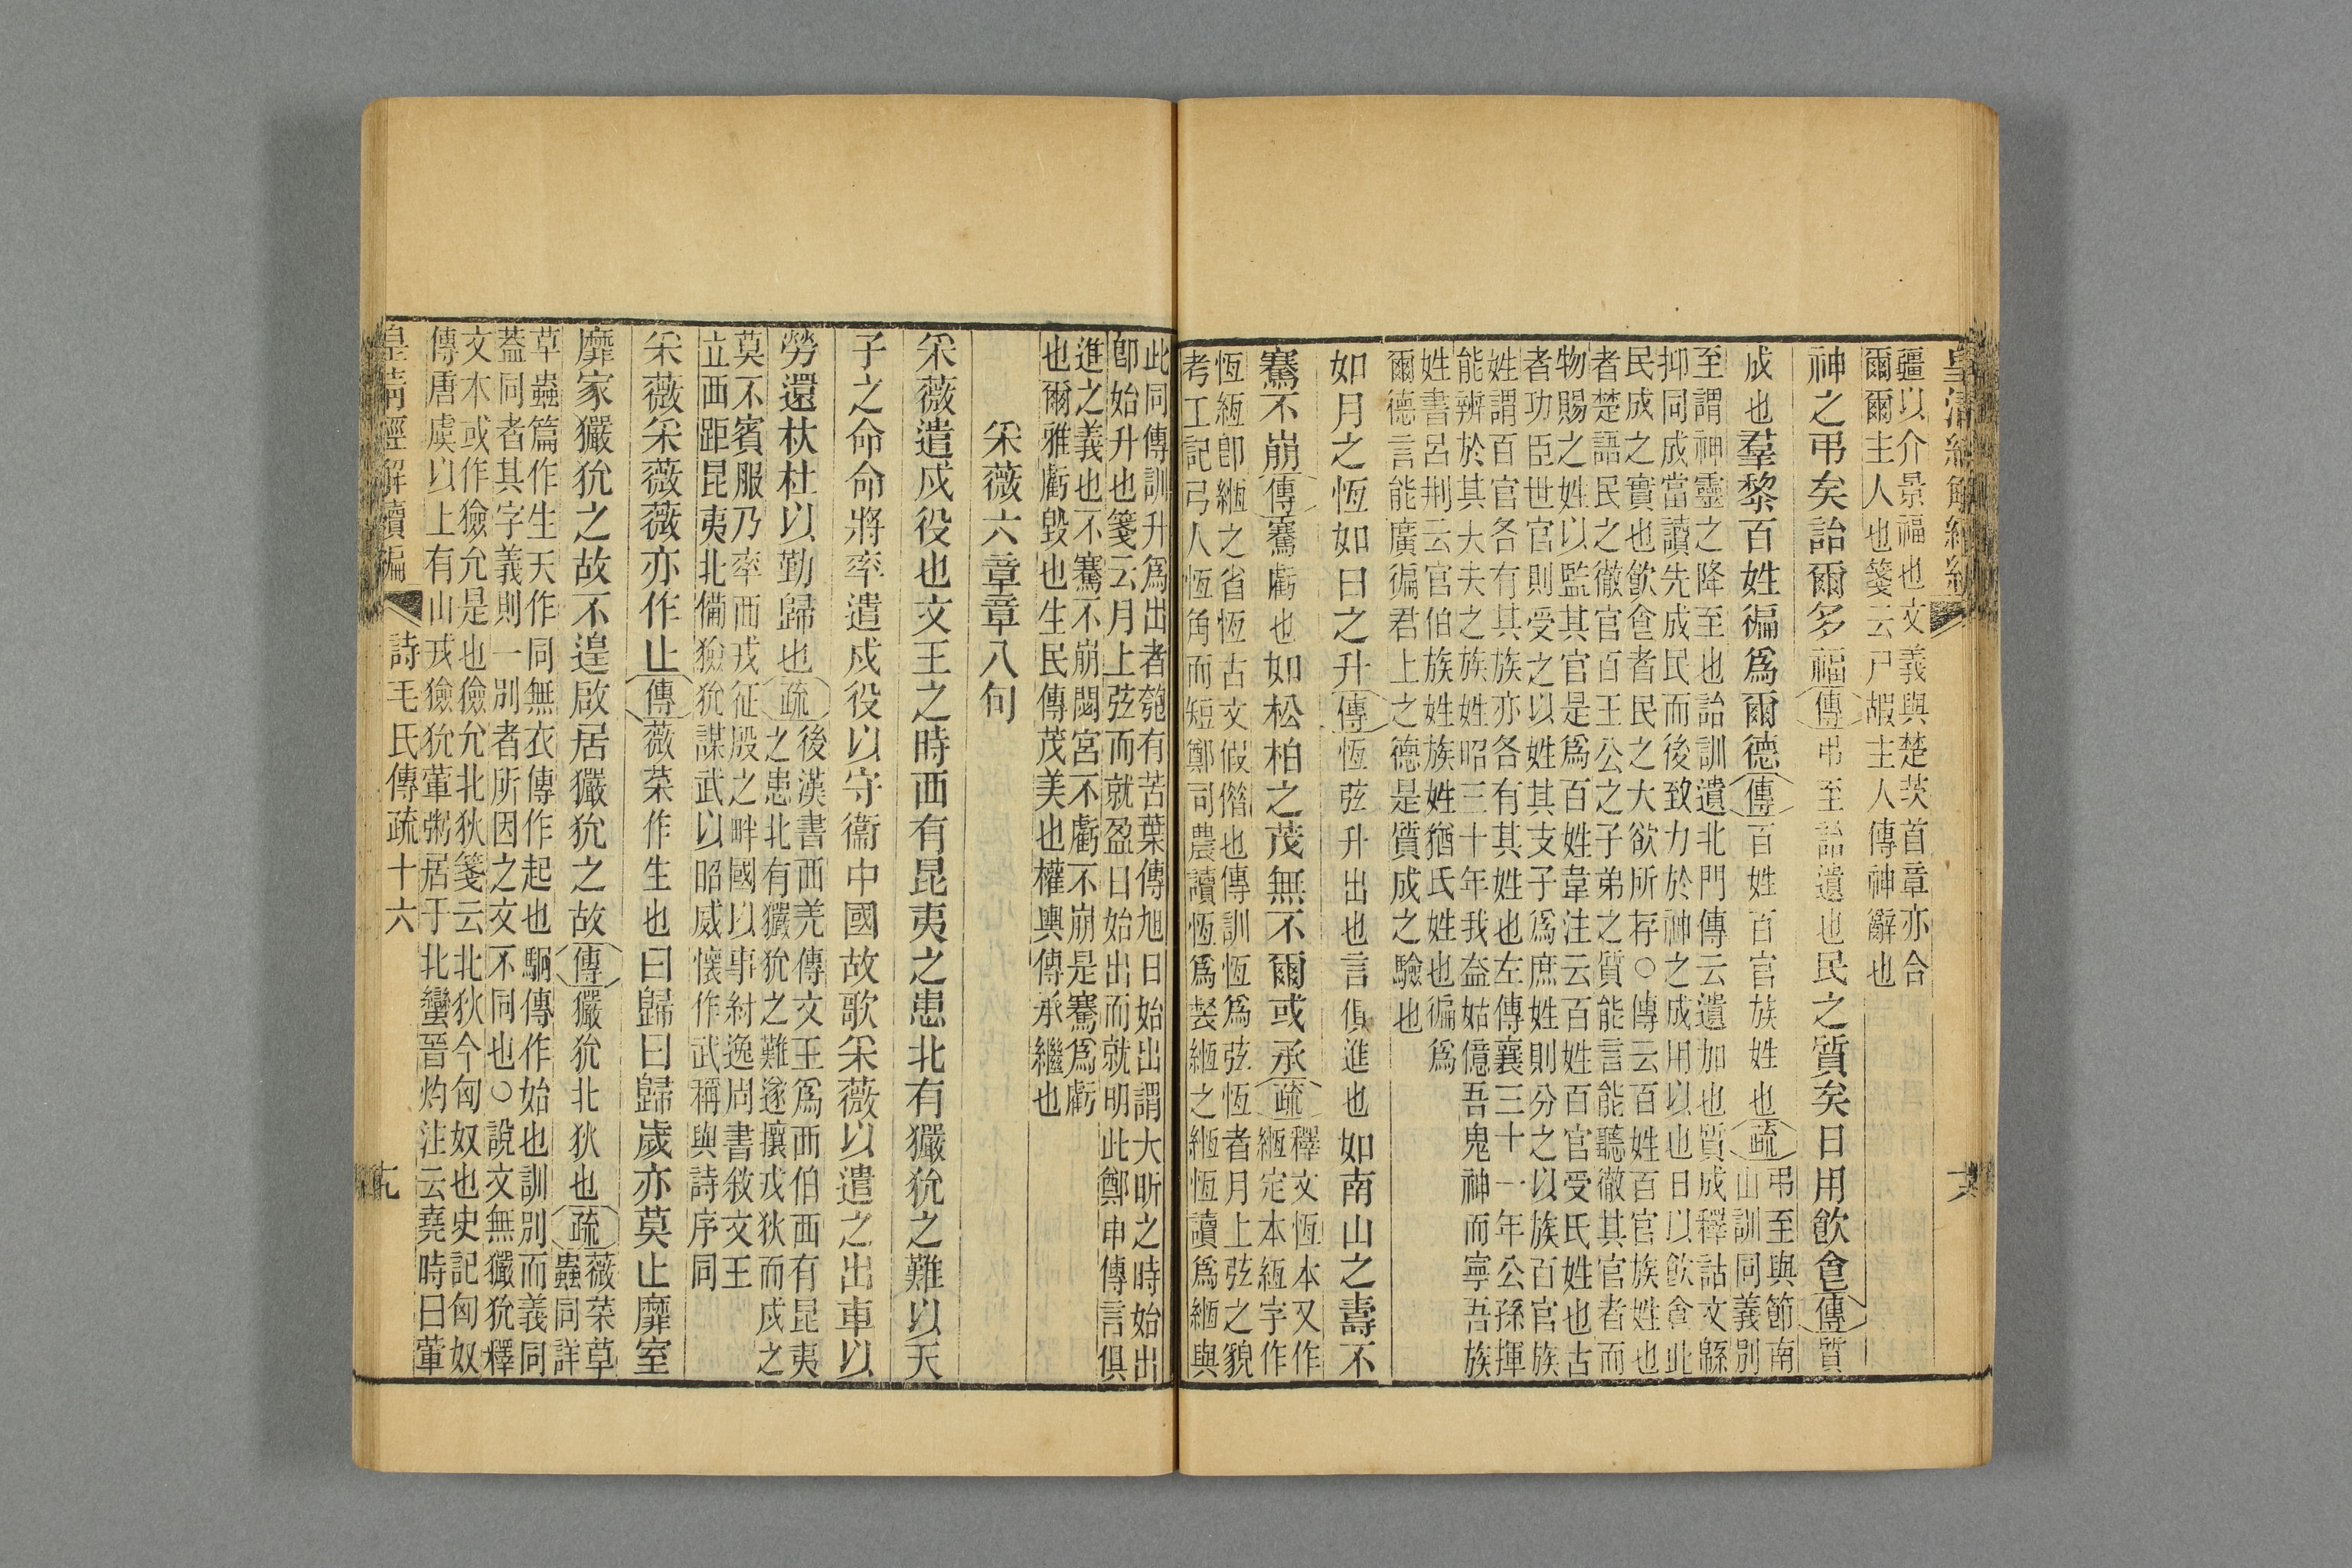 皇清經解續編
疆以介景福也文義與楚茨首章亦合
爾爾主人也箋云尸嘏主人傳神辭也
神之弔矣詒爾多福傳弔至詒遺也民之質矣日用飲食傳質
成也羣黎百姓徧爲爾德傳百姓百官族姓也疏弔至與節南
山訓同義別
至謂神靈之降至也詒訓遺北門傳云遺加也質成釋詁文緜
抑同成當讀先成民而後致力於神之成用以也日以飲食此
民成之實也飲食者民之大欲所存○傳云百姓百官族姓也
者楚語民之徹官百王公之子弟之質能言能聽徹其官者而
物賜之姓以監其官是爲百姓韋注云百姓百官受氏姓也古
者功臣世官則受之以姓其支子爲庶姓則分之以族百官族
姓謂百官各有其族亦各有其姓也左傳襄三十一年公孫揮
能辨於其大夫之族姓昭三十年我盍姑億吾鬼神而寧吾族
姓書呂刑云官伯族姓族姓猶氏姓也徧爲
爾德言能廣徧君上之德是質成之驗也
如月之恆如日之升傳恆弦升出也言俱進也如南山之壽不
騫不崩傳騫虧也如松柏之茂無不爾或承疏釋文恆本又作
緪定本緪字作
恆緪卽緪之省恆古文假借也傳訓恆爲弦恆者月上弦之貌
考工記弓人恆角而短鄭司農讀恆爲裻緪之緪恆讀爲緪與
此同傳訓升爲出者匏有苦葉傳旭日始出謂大昕之時始出
卽始升也箋云月上弦而就盈日始出而就明此鄭申傳言俱
進之義也不騫不崩閟宮不虧不崩是騫爲虧
也爾雅虧毀也生民傳茂美也權輿傳承繼也
采薇六章章八句
采薇遣戍役也文王之時西有昆夷之患北有玁狁之難以天
子之命命將率遣戍役以守衞中國故歌采薇以遣之出車以
勞還杕杜以勤歸也疏後漢書西羌傳文王爲西伯西有昆夷
之患北有玁狁之難遂攘戎狄而戍之
莫不賓服乃率西戎征殷之畔國以事紂逸周書敘文王
立西距昆夷北備獫狁謀武以昭威懷作武稱與詩序同
采薇采薇薇亦作止傳薇菜作生也曰歸曰歸歲亦莫止靡室
靡家玁狁之故不遑啟居玁狁之故傳玁狁北狄也疏薇菜草
蟲同詳
草蟲篇作生天作同無衣傳作起也駉傳作始也訓別而義同
蓋同者其字義則一別者所因之文不同也○說文無玁狁釋
文本或作獫允是也獫允北狄箋云北狄今匈奴也史記匈奴
傳唐虞以上有山戎獫狁葷粥居于北蠻晉灼注云堯時曰葷
皇清經解續編
詩毛氏傳疏十六